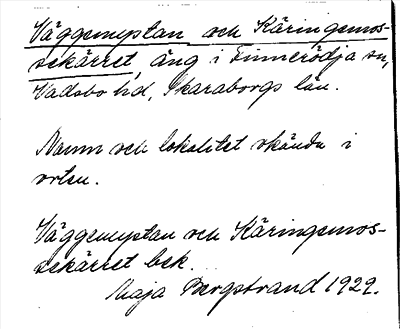 Väggemystan och Käringemos-
sekärret, äng i Finnerödja sn,
Vadsbo hd, Skaraborgs län.
Namn och lokalitet okända i
orten.
Väggemystan och Käringemos-
sekärret bek.
Maja Bergstrand 1929.